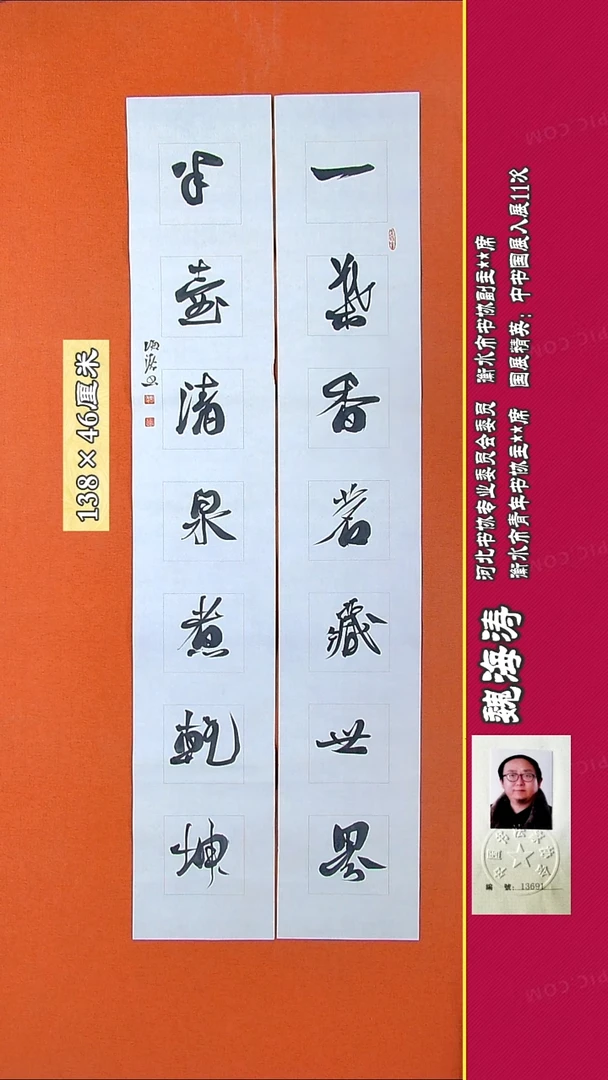 一葉香茗藏世界
半壺清泉煮乾坤
138×46厘米
魏海涛
河北书协专业委员会委员 衡水市书协副主**席
衡水市青年书协主**席 国展精英：中书国展入展11次
編 號：13691
PIC.COM